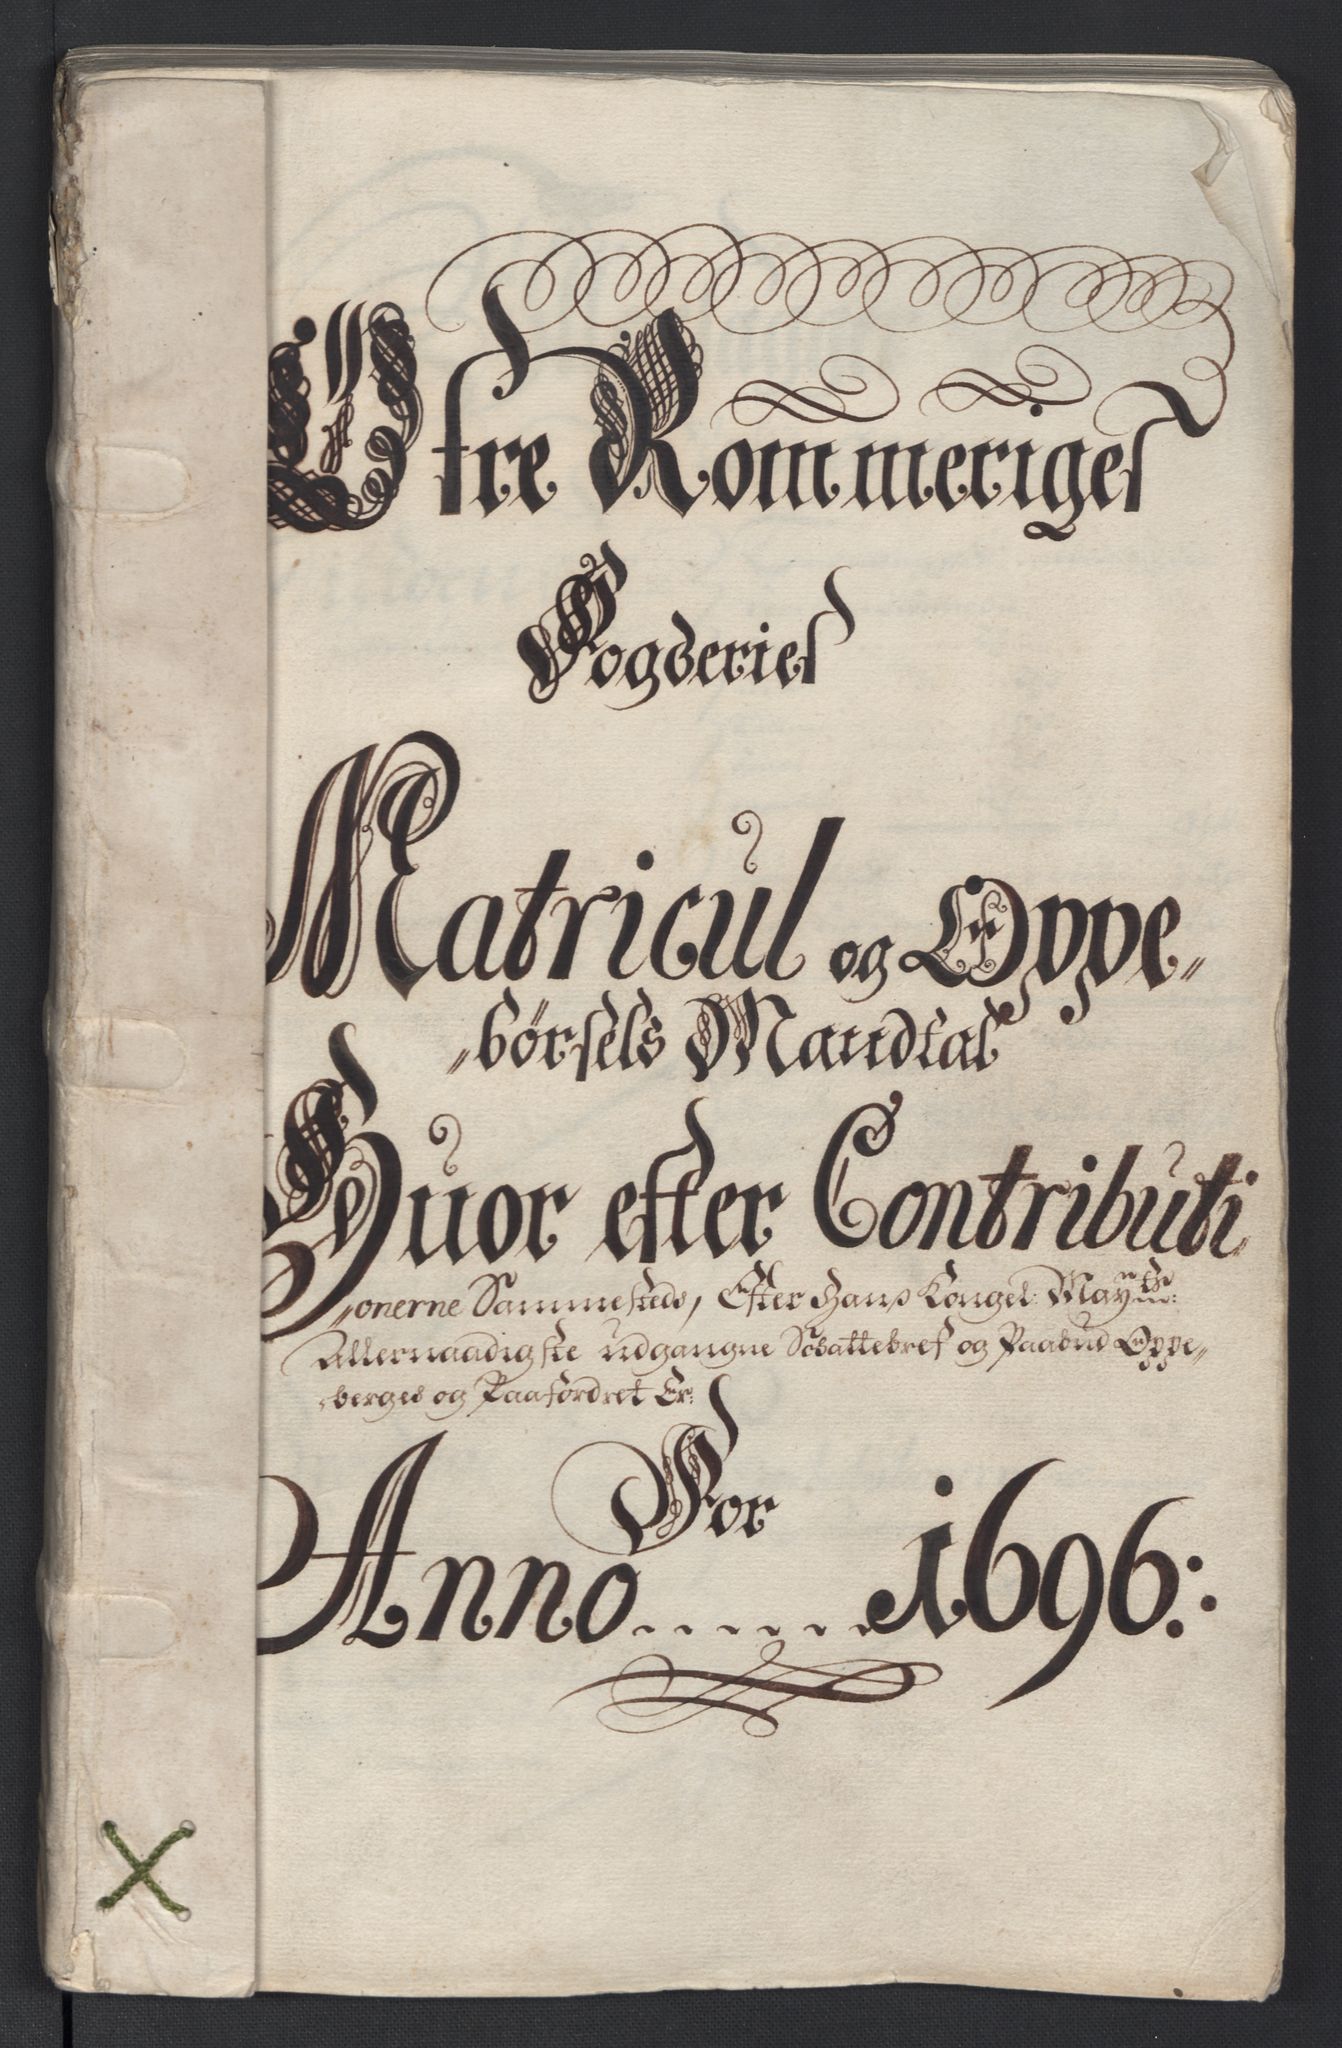 Øfre Rommeriges
Fogderies
Matricul og Oppe„
„börsels Mandtal
Huor efter Contributi
„onerne Sammesteds, Efter Hans Kongel: Mayts:
Allernaadigste udgangne Schattebref og Paabud Oppe„
„berges og Paafordret Er:
For
Anno...... 1696:.